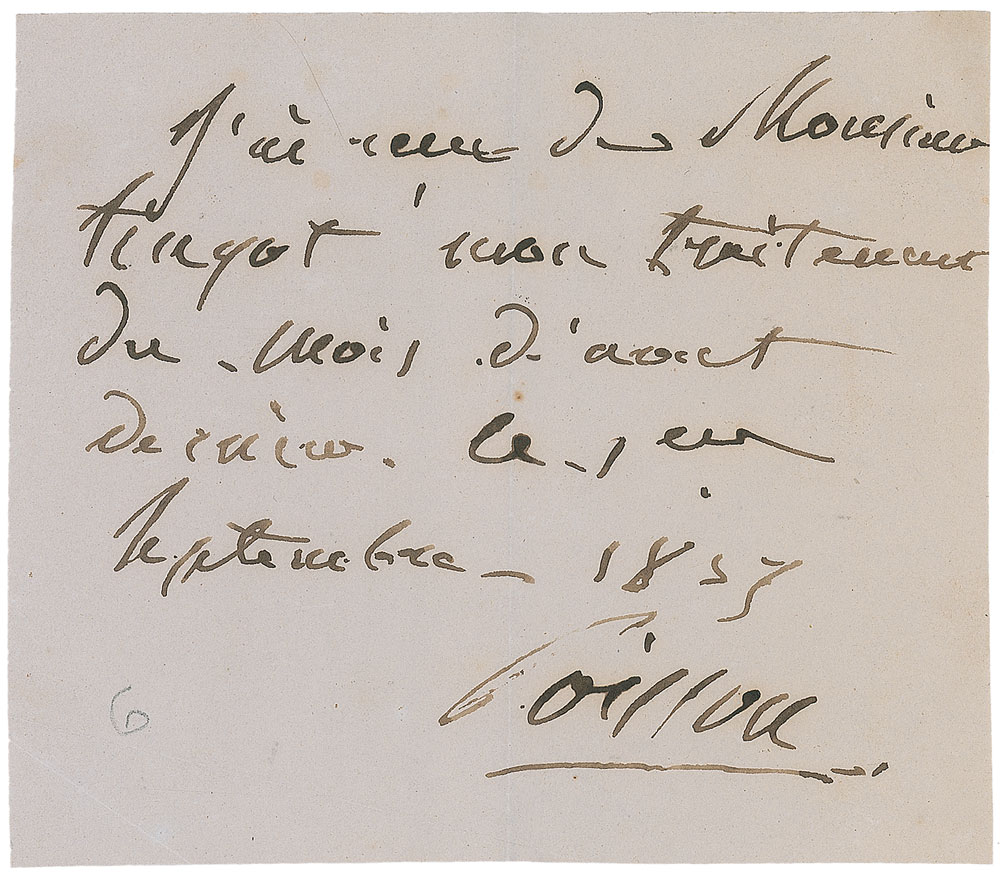 J'ai reçu de Monsieur
tingot mon traitement
du mois d'aout
dernier. Le 1er
Septembre _ 1837
Poisson
6